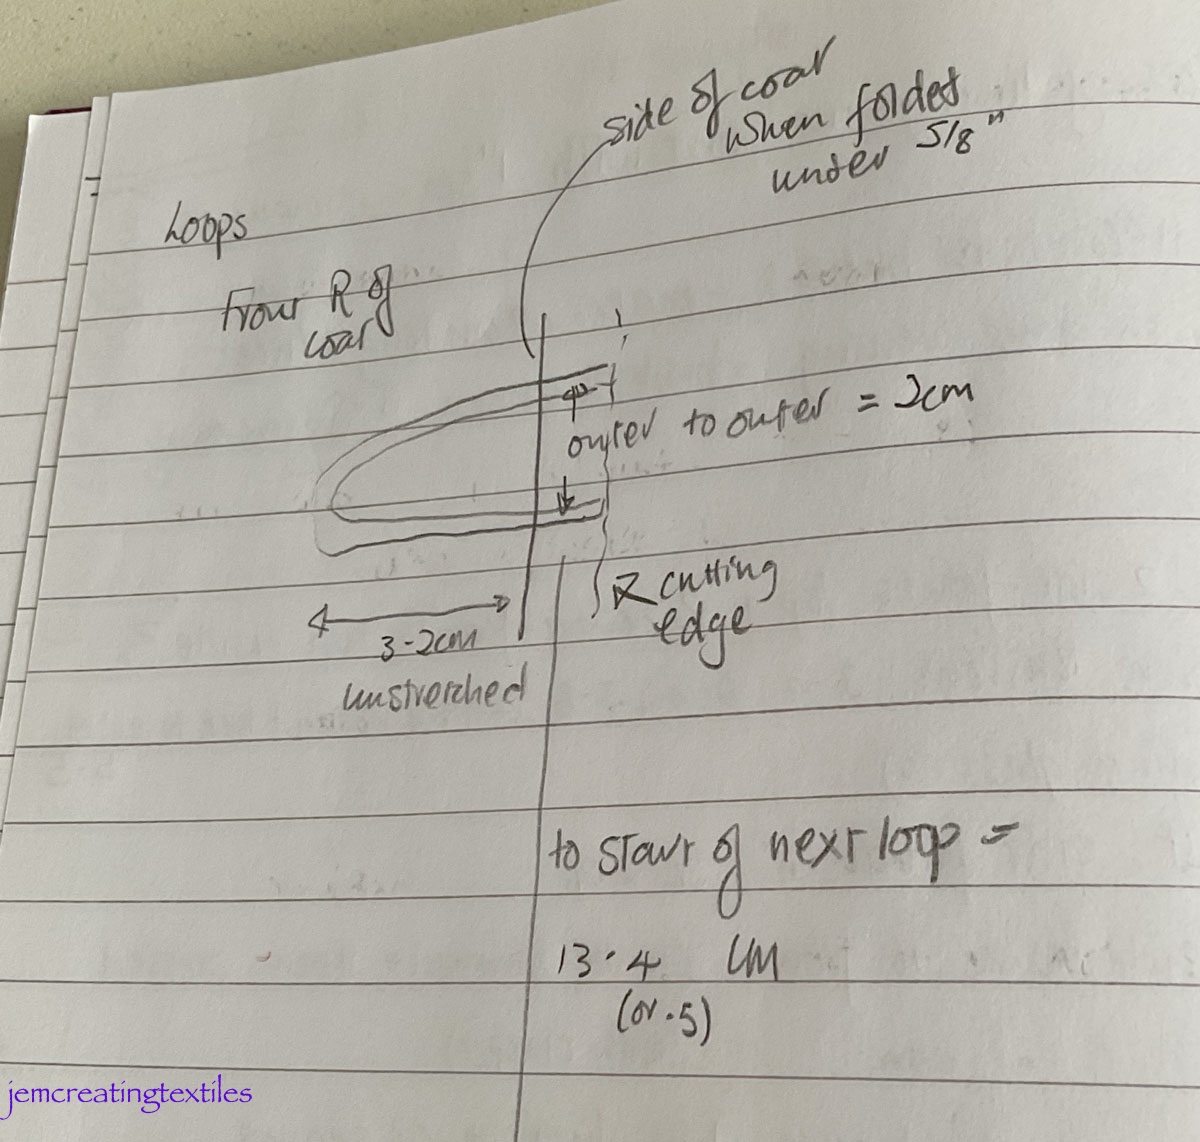 side of coat
when folded
under 5/8"
Loops
Front R of
coat
outer to outer = 2cm
cutting
edge
3.2cm
unstretched
to start of next loop =
13.4 cm
(or .5)
jemcreatingtextiles